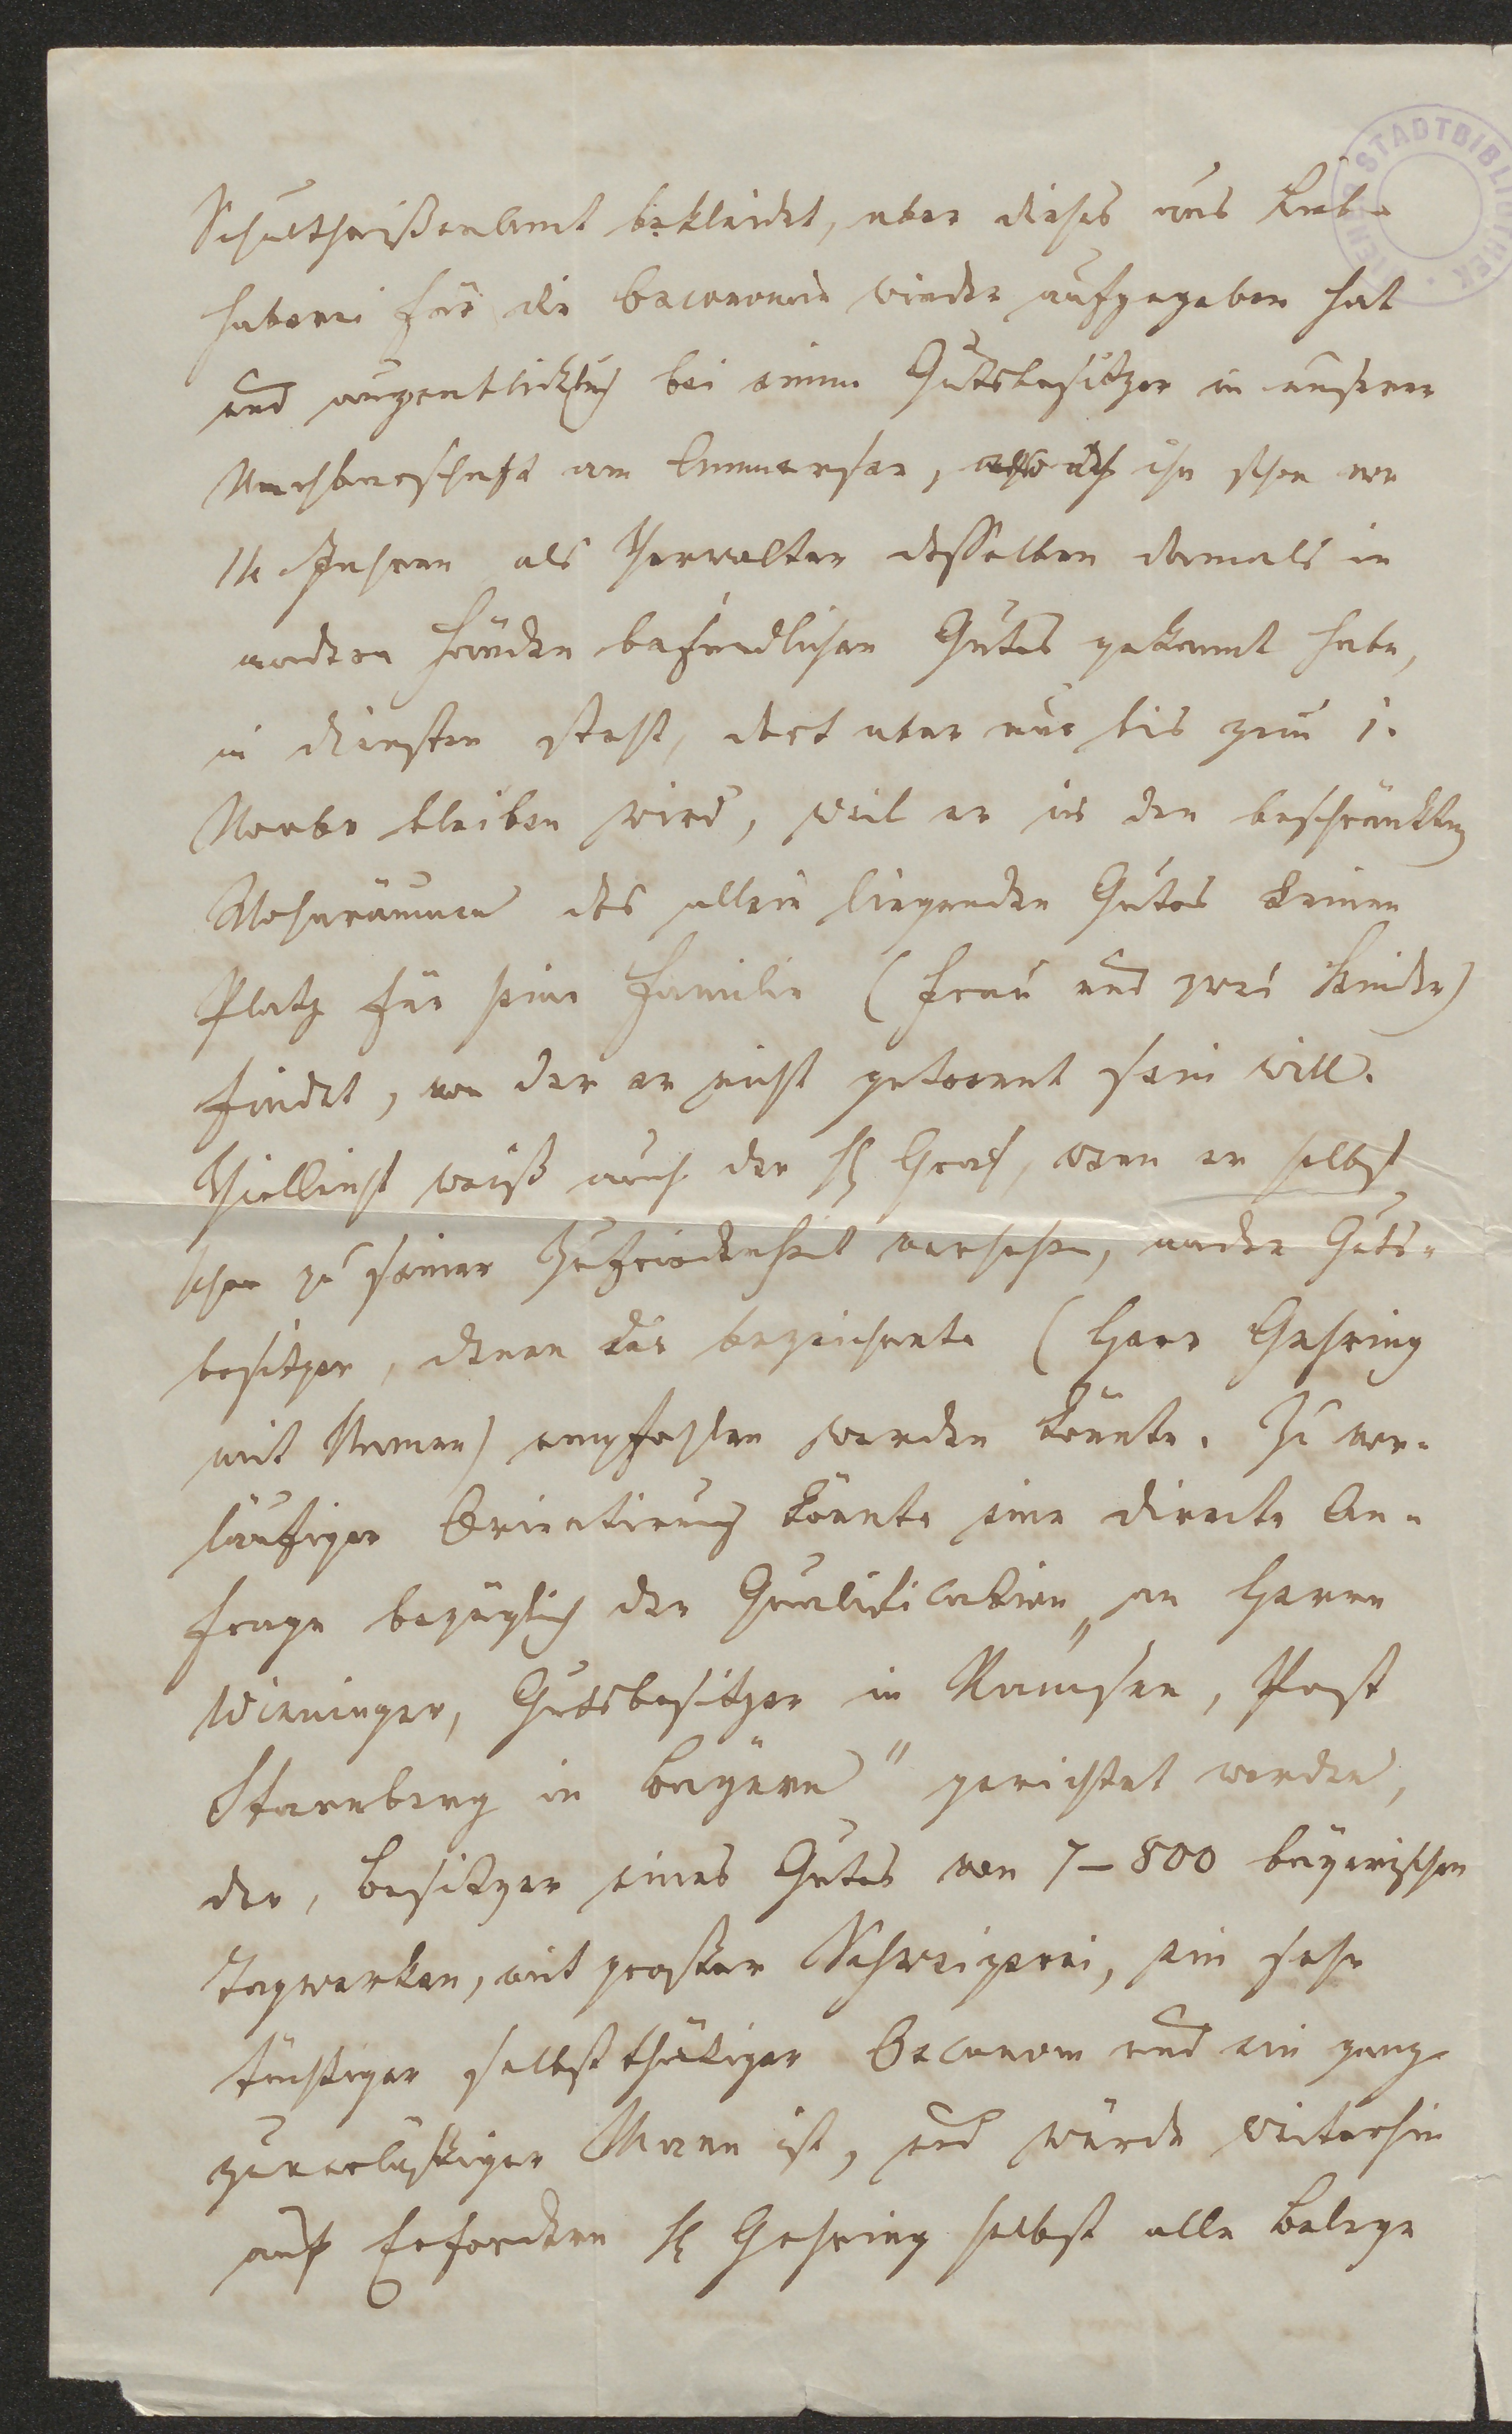 Schultheißenamt bekleidet, aber dieses aus Lieb-
haberei für die Oeconomie wieder aufgegeben hat
und augenblicklich bei einem Gutsbesitzer in unserer
Nachbarschaft am Ammersee, ich ihn schon vor
14 Jahren als Verwalter desselben damals in
andern Händen befindlichen Gutes gekannt habe,
in Diensten steht, dort aber nur bis zum 1.
Novbr bleiben wird, weil er in den beschränkten
Wohnräumen des allein liegenden Gutes keinen
Platz für seine Familie (Frau und zwei Kinder)
findet, von der er nicht getrennt sein will.
Vielleicht weiß auch der H Graf, wenn er selbst
schon zu seiner Zufriedenheit versehen, andere Guts-
besitzer, denen der bezeichnete (Herr Gehring
mit Namen) empfohlen werden könnte. Zu vor-
läufiger Orientirung könnte eine directe An-
frage bezüglich der Qualification „an Herrn
Wieninger, Gutsbesitzer in Ramsee, Post
Starnberg in Bayern" gerichtet werden,
der, Besitzer eines Gutes von 7–800 bayerischen
Tagwerken, mit großer Schweigerei, ein sehr
tüchtiger selbstthätiger Oeconom und ein ganz
zuverlässiger Mann ist, und würde weiterhin
auf Erfordern H Gehring selbst alle Belege
STADTBIBLIOTHEK